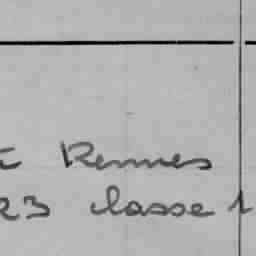 Rennes
23 classe 1